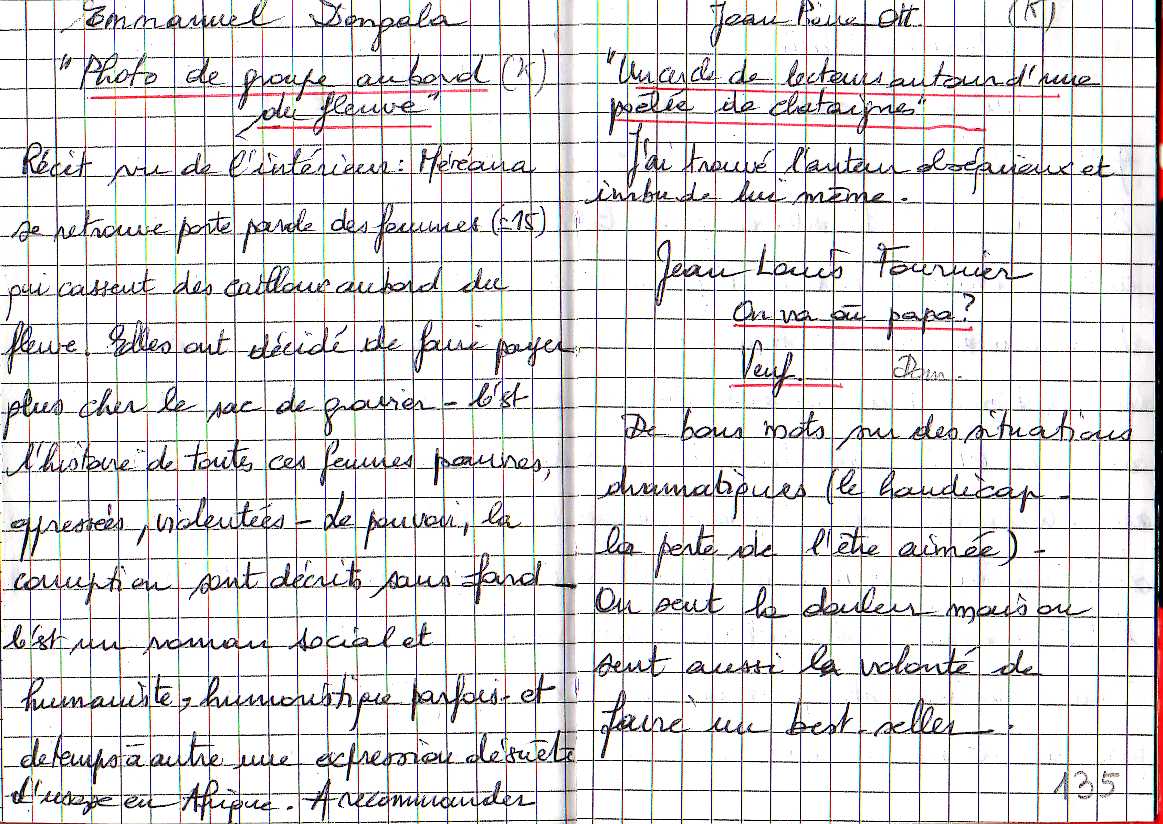 Emmanuel Dongala
"Photo de groupe au bord (K)
du fleuve"
Récit vu de l'intérieur : Méréana
se retrouve porte parole des femmes (≃15)
qui cassent des cailloux au bord du
fleuve. Elles ont décidé de faire payer
plus cher le sac de gravier - C'est
l'histoire de toutes ces femmes pauvres,
oppressées, violentées - Le pouvoir, la
corruption sont décrits sans fard -
C'est un roman social et
humaniste, humoristique parfois - et
de temps à autre une expression désuète
d'usage en Afrique. A recommander
Jean Pierre Ott (K)
"Un cercle de lecteurs autour d'une
poêlée de chataignes"
J'ai trouvé l'auteur obséquieux et
imbu de lui même.
Jean Louis Fournier
On va où papa ?
Veuf. Don.
De bons mots sur des situations
dramatiques (le handicap -
la perte de l'être aimée) -
On sent la douleur mais on
sent aussi la volonté de
faire un best-seller.
135